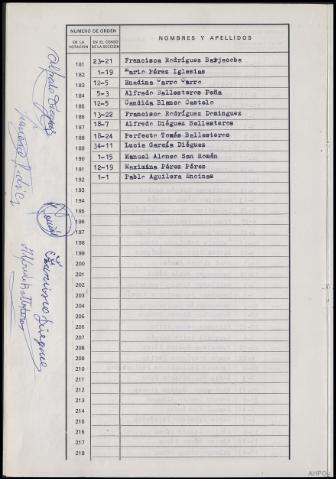 NUMERO DE ORDEN
NOMBRES Y APELLIDOS
EN LA VOTACION
EN EL CENSO DE LA SECCION
181 23-21 Francisca Rodríguez
182 1-19 Mario Pérez Iglesias
183 12-5 Enedina Yarro Yarro
184 5-3 Alfredo Ballesteros Peña
185 12-5 Candida Blanco Castelo
186 13-22 Francisco Rodríguez Dominguez
187 18-7 Alfredo Diéguez Ballesteros
188 18-24 Perfecto Tomás Ballesteros
189 34-11 Lucia García Diéguez
190 1-15 Manuel Alonso San Román
191 12-19 Maximina Pérez Pérez
192 1-1 Pablo Aguilera Encinas
193
194
195
196
197
198
199
200
201
202
203
204
205
206
207
208
209
210
211
212
213
214
215
216
217
218
219